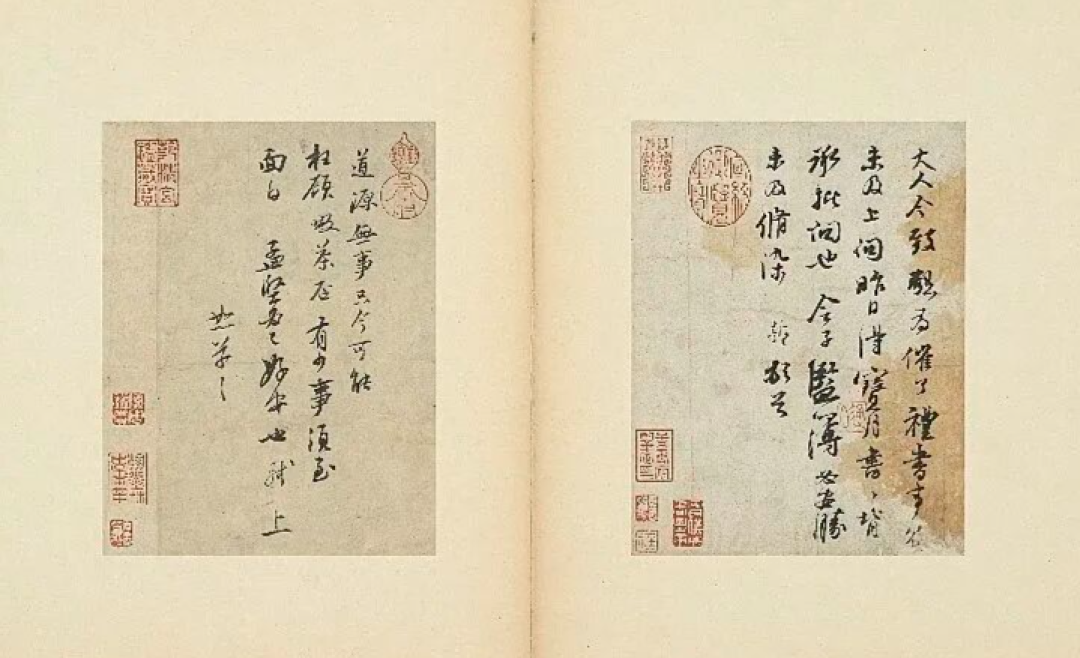 大人令致懇為催了禮書事冗
未及上問昨日得寶月書々背
承批問也令子監簿必安勝
未及脩染 軾頓首
道源無事只今可能
枉顧啜茶否有少事須至
面白 孟堅必已好安也軾上
恕草々